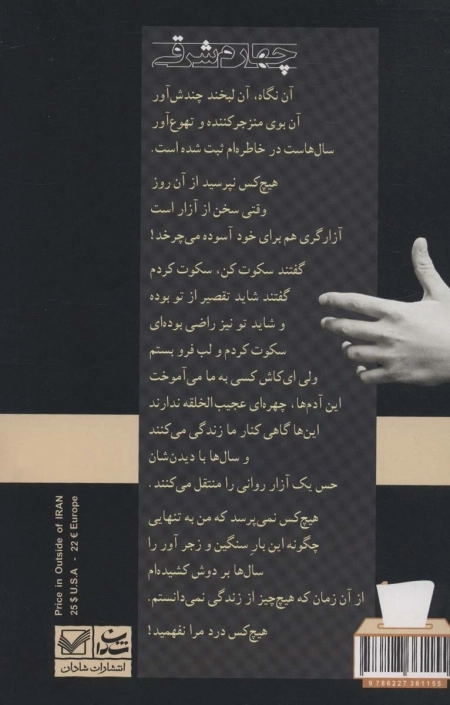 چهارم شرقی
آن نگاه، آن لبخند چندش‌آور
آن بوی منزجرکننده و تهوع‌آور
سال‌هاست در خاطره‌ام ثبت شده است.
هیچ‌کس نپرسید از آن روز
وقتی سخن از آزار است
آزارگری هم برای خود آسوده می‌چرخد!
گفتند سکوت کن، سکوت کردم
گفتند شاید تقصیر از تو بوده
و شاید تو نیز راضی بوده‌ای
سکوت کردم و لب فرو بستم
ولی ای‌کاش کسی به ما می‌آموخت
این آدم‌ها، چهره‌ای عجیب‌الخلقه ندارند
این‌ها گاهی کنار ما زندگی می‌کنند
و سال‌ها با دیدن‌شان
حس یک آزار روانی را منتقل می‌کنند.
هیچ‌کس نمی‌پرسد که من به تنهایی
چگونه این بار سنگین و زجرآور را
سال‌ها بر دوش کشیده‌ام
از آن زمان که هیچ‌چیز از زندگی نمی‌دانستم.
هیچ‌کس درد مرا نفهمید!
Price in Outside of IRAN
25 $ U.S.A - 22 € Europe
شادان
انتشارات شادان
9 786227 361155